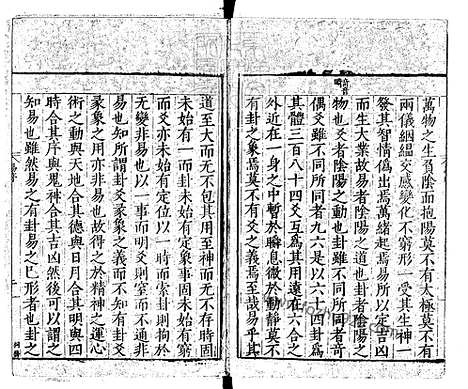 萬物之生負陰而抱陽莫不有太極莫不有
兩儀絪縕交感變化不窮形一受其生神一
發其智情僞出焉萬緒起焉易所以定吉凶
而生大業故易者陰陽之道也卦者陰陽之
物也爻者陰陽之動也卦雖不同所同者奇
偶爻雖不同所同者九六是以六十四卦爲
其體三百八十四爻互爲其用遠在六合之
外近在一身之中暫於瞬息微於動靜莫不
有卦之象焉莫不有爻之義焉至哉易乎其
道至大而无不包其用至神而无不存時固
未始有一而卦未始有定象事固未始有窮
而爻亦未始有定位以一時而索卦則拘於
无變非易也以一事而明爻則窒而不通非
易也知所謂卦爻彖象之義而不知有卦爻
彖象之用亦非易也故得之於精神之運心
術之動與天地合其德與日月合其明與四
時合其序與鬼神合其吉凶然後可以謂之
知易也雖然易之有卦易之已形者也卦之